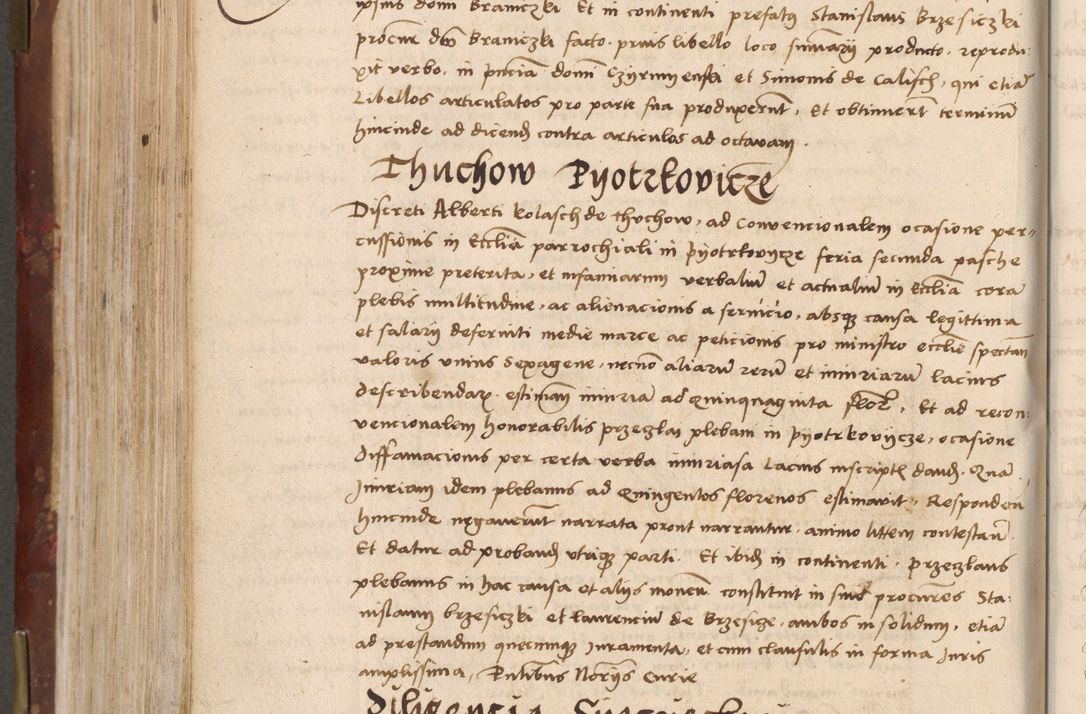 ipsius domi Kraniczki Et in continenti prefatus Stanislaus Brzesiczki
procur dni Kraniczki facto. prius libello loco sumarÿ producto. reprodu-
xit verbo. in pnciã domi Czÿrmÿenski et Simonis de Calisch, qui etiã
Libellos articulatos pro parte sua produxerūt, Et obtinuerūt terminū
hincinde ad dicend contra articulos ad octavam.
Thuchow Pÿotrkovicze
Discreti Alberti kolasch de thuchow, ad Convencionalem ocasione per-
cussionis in Ecclia parrochiali in pÿotrkowÿcze feria secunda pasche
proxime preterita, et infamiarum verbaliū et actualiū in Ecclia corā
plebis multitudine, ac alienacionis a servicio, absqz causa legittima
et salarÿ deserviti medie marce ac peticionis pro ministro ecclie spectan
valoris unius Sexagene, necnō aliarū rerū et iniuriarū lacius
describendar. estiman iniuriā ad Quinquaginta flor, Et ad recon-
vencionalem honorabilis przeczlai plebani in pÿotrkovÿcze, ocasione
diffamacionis per certa verba iniuriosa Lacius inscript dand. Quā
Iniuriam idem plebanus ad Quingentos florenos estimavit, Responden
hincinde negaverūt narrata prout narrantur. animo littem contestan.
Et datur ad proband utriqz parti. Et ibid in continenti. Przeczlaus
plebanus in hac causa et alÿs monen constituit in suos procures Sta-
nislaum brzesiczki et laurenciū de Brzesicze. ambos in solidum, etiā
ad prestandum quecunqz Iuramenta, et cum clausulis in forma Iuris
amplissima, Pntibus Norÿs Curie
Diligencia